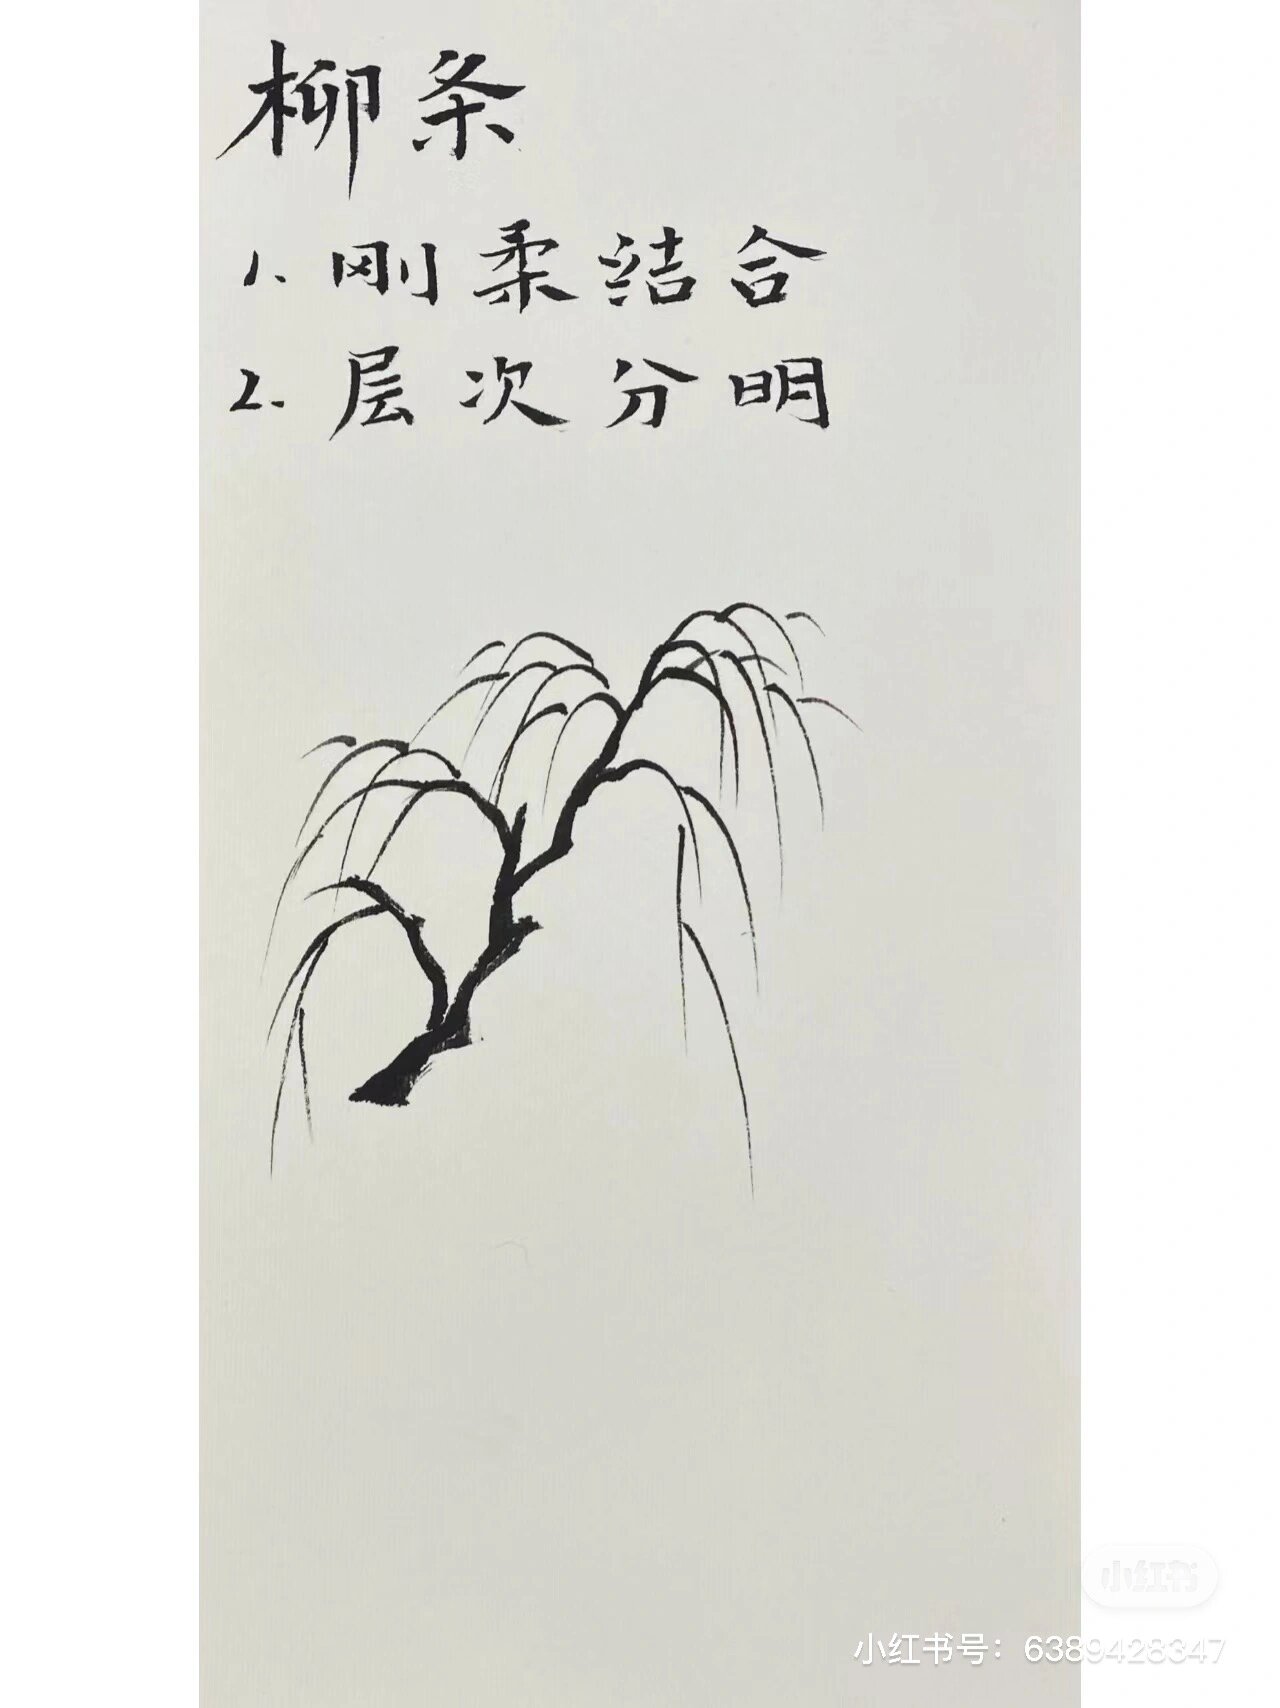 柳条
1. 刚柔结合
2. 层次分明
小红书
小红书号：6389428347